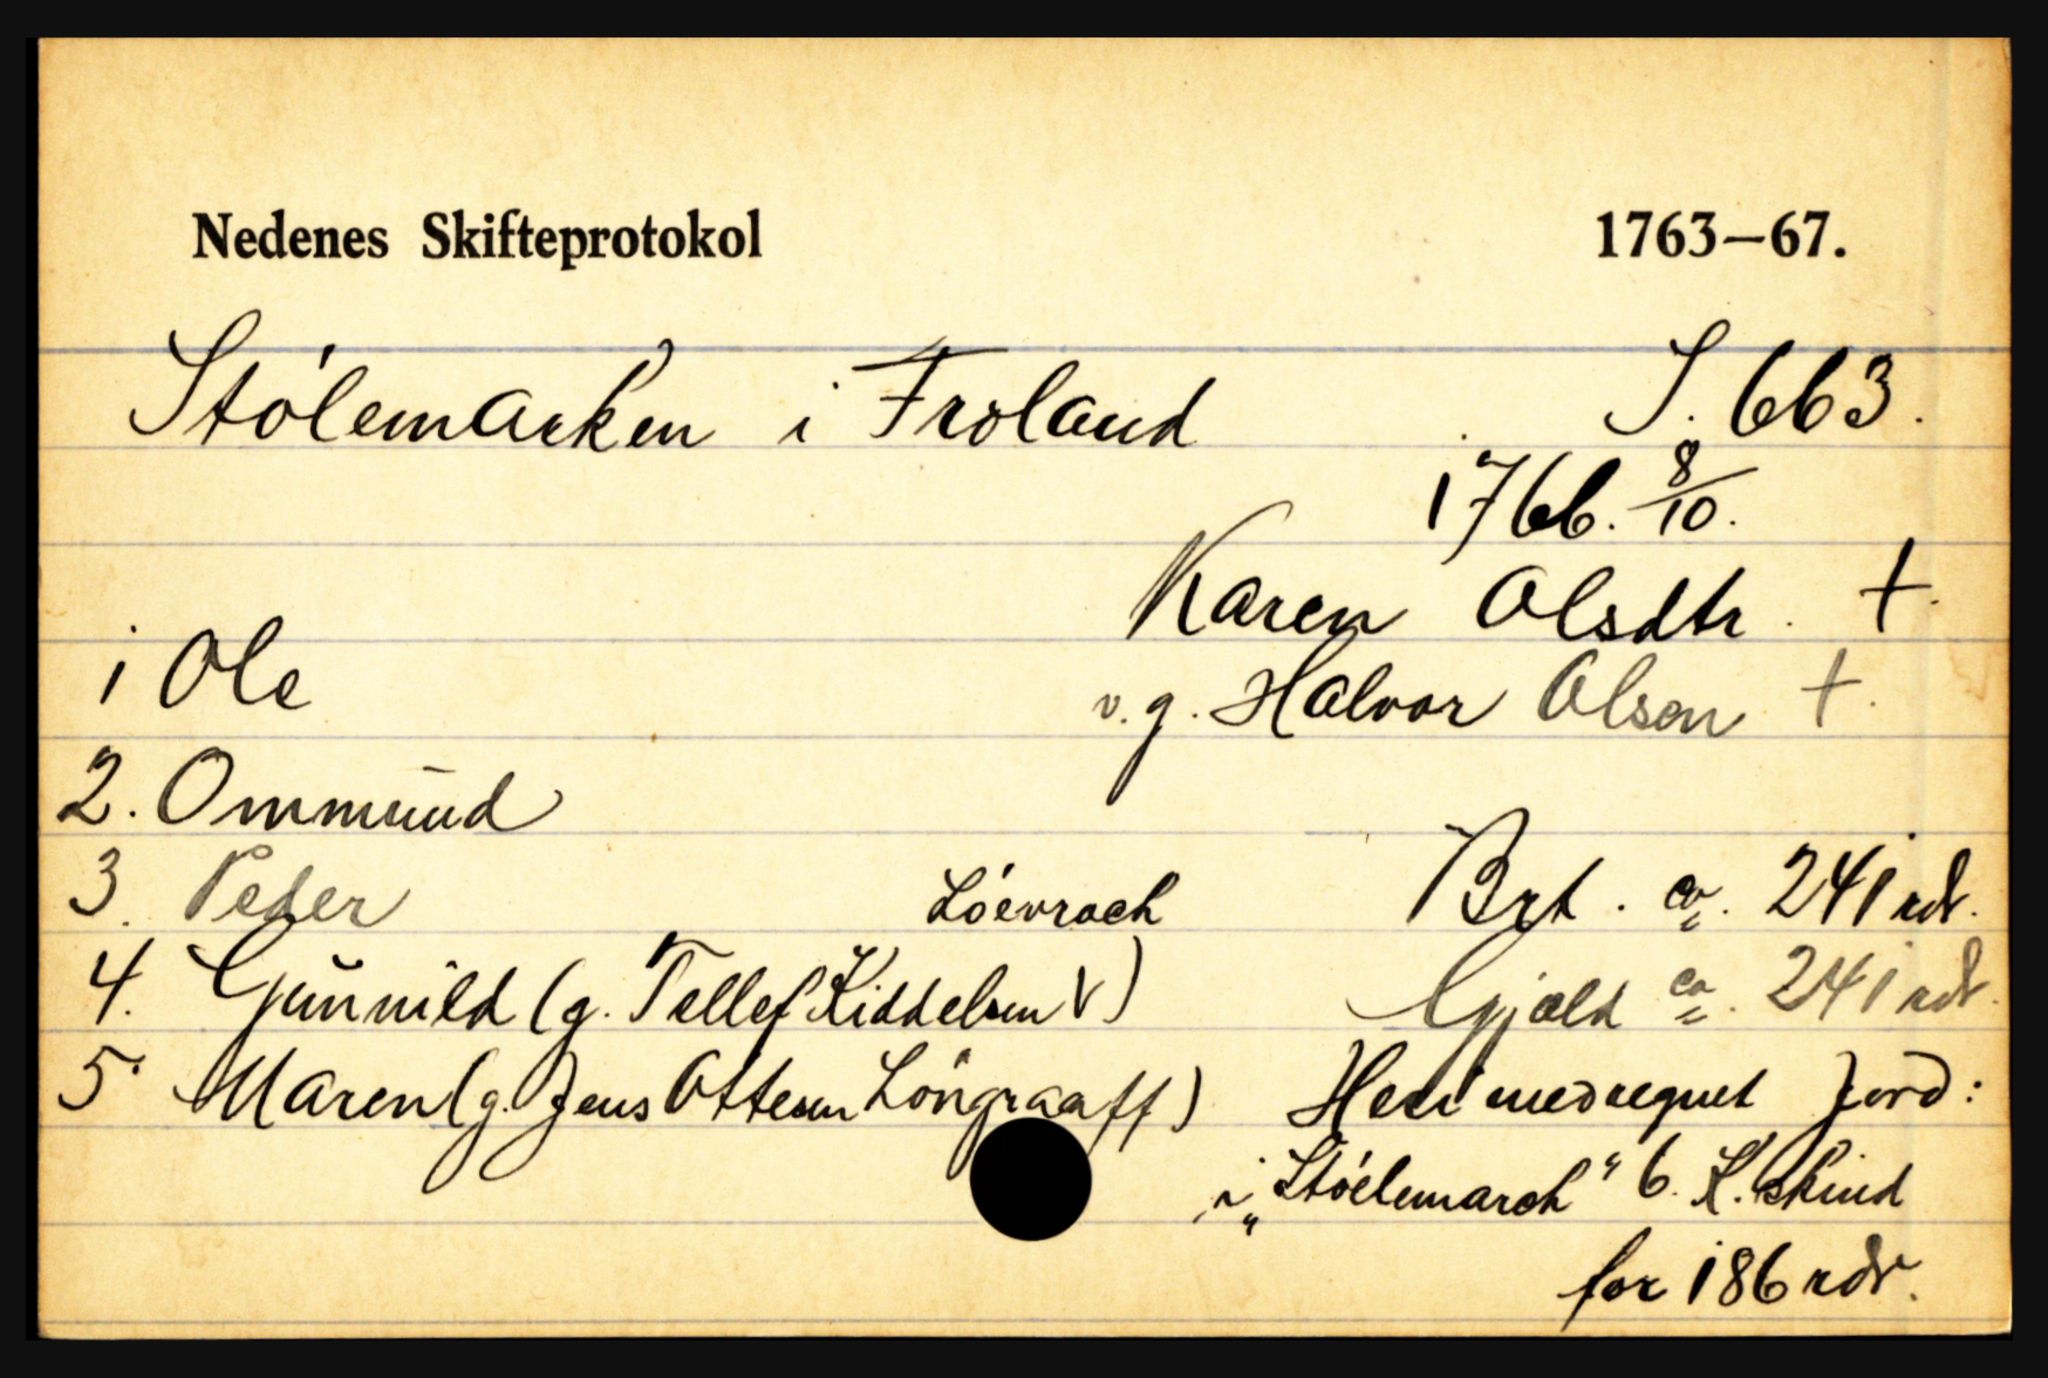 Nedenes Skifteprotokol 1763—67.
Stólemarken i Froland S. 663.
1766. 8/10.
Karen Olsdtr. †.
1 Ole v.g. Halvor Olsen †.
2. Ommund
3. Peder Brt. ca. 241 rdr.
4. Gunnild (g. Tellef Kiddelsen Lóevrach) Gjæld ca. 241 rdr.
5 Maren (g. Jens Ottesen Löngraaff) Heri medregnet Jord:
i „Stóelemarch" 6. K. skind
for 186 rdr.